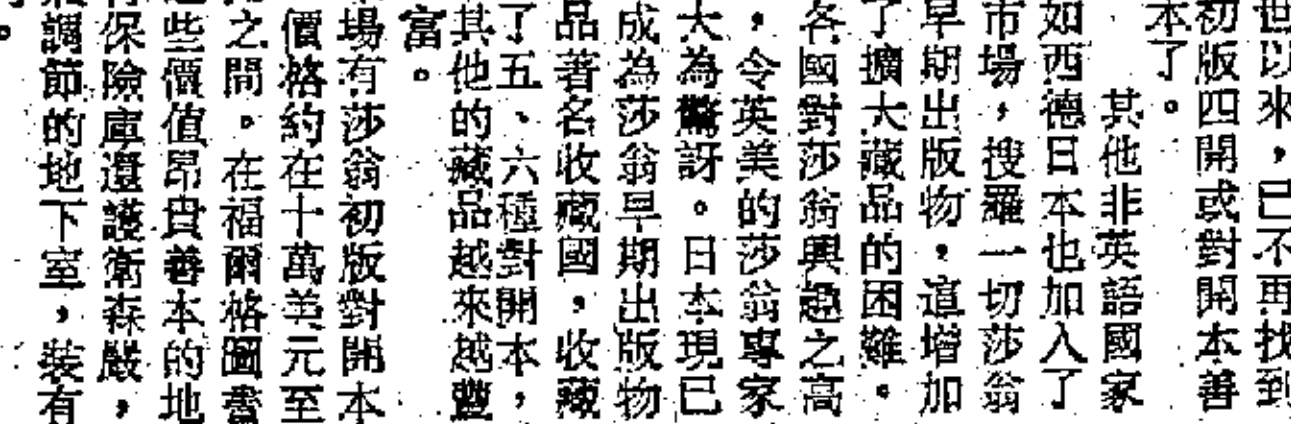 世以來，已不再找到
初版四開或對開本善
本了。
其他非英語國家
如西德日本也加入了
市場，搜羅一切莎翁
早期出版物，這增加
了擴大藏品的困難。
各國對莎翁興趣之高
，令英美的莎翁專家
大為驚訝。日本現已
成為莎翁早期出版物
品著名收藏國，收藏
了五、六種對開本，
其他的藏品越來越豐
富。
場有莎翁初版對開本
價格約在十萬美元至
之間。在福爾格圖書
些價值昂貴善本的地
保險庫還護衛森嚴，
調節的地下室，裝有